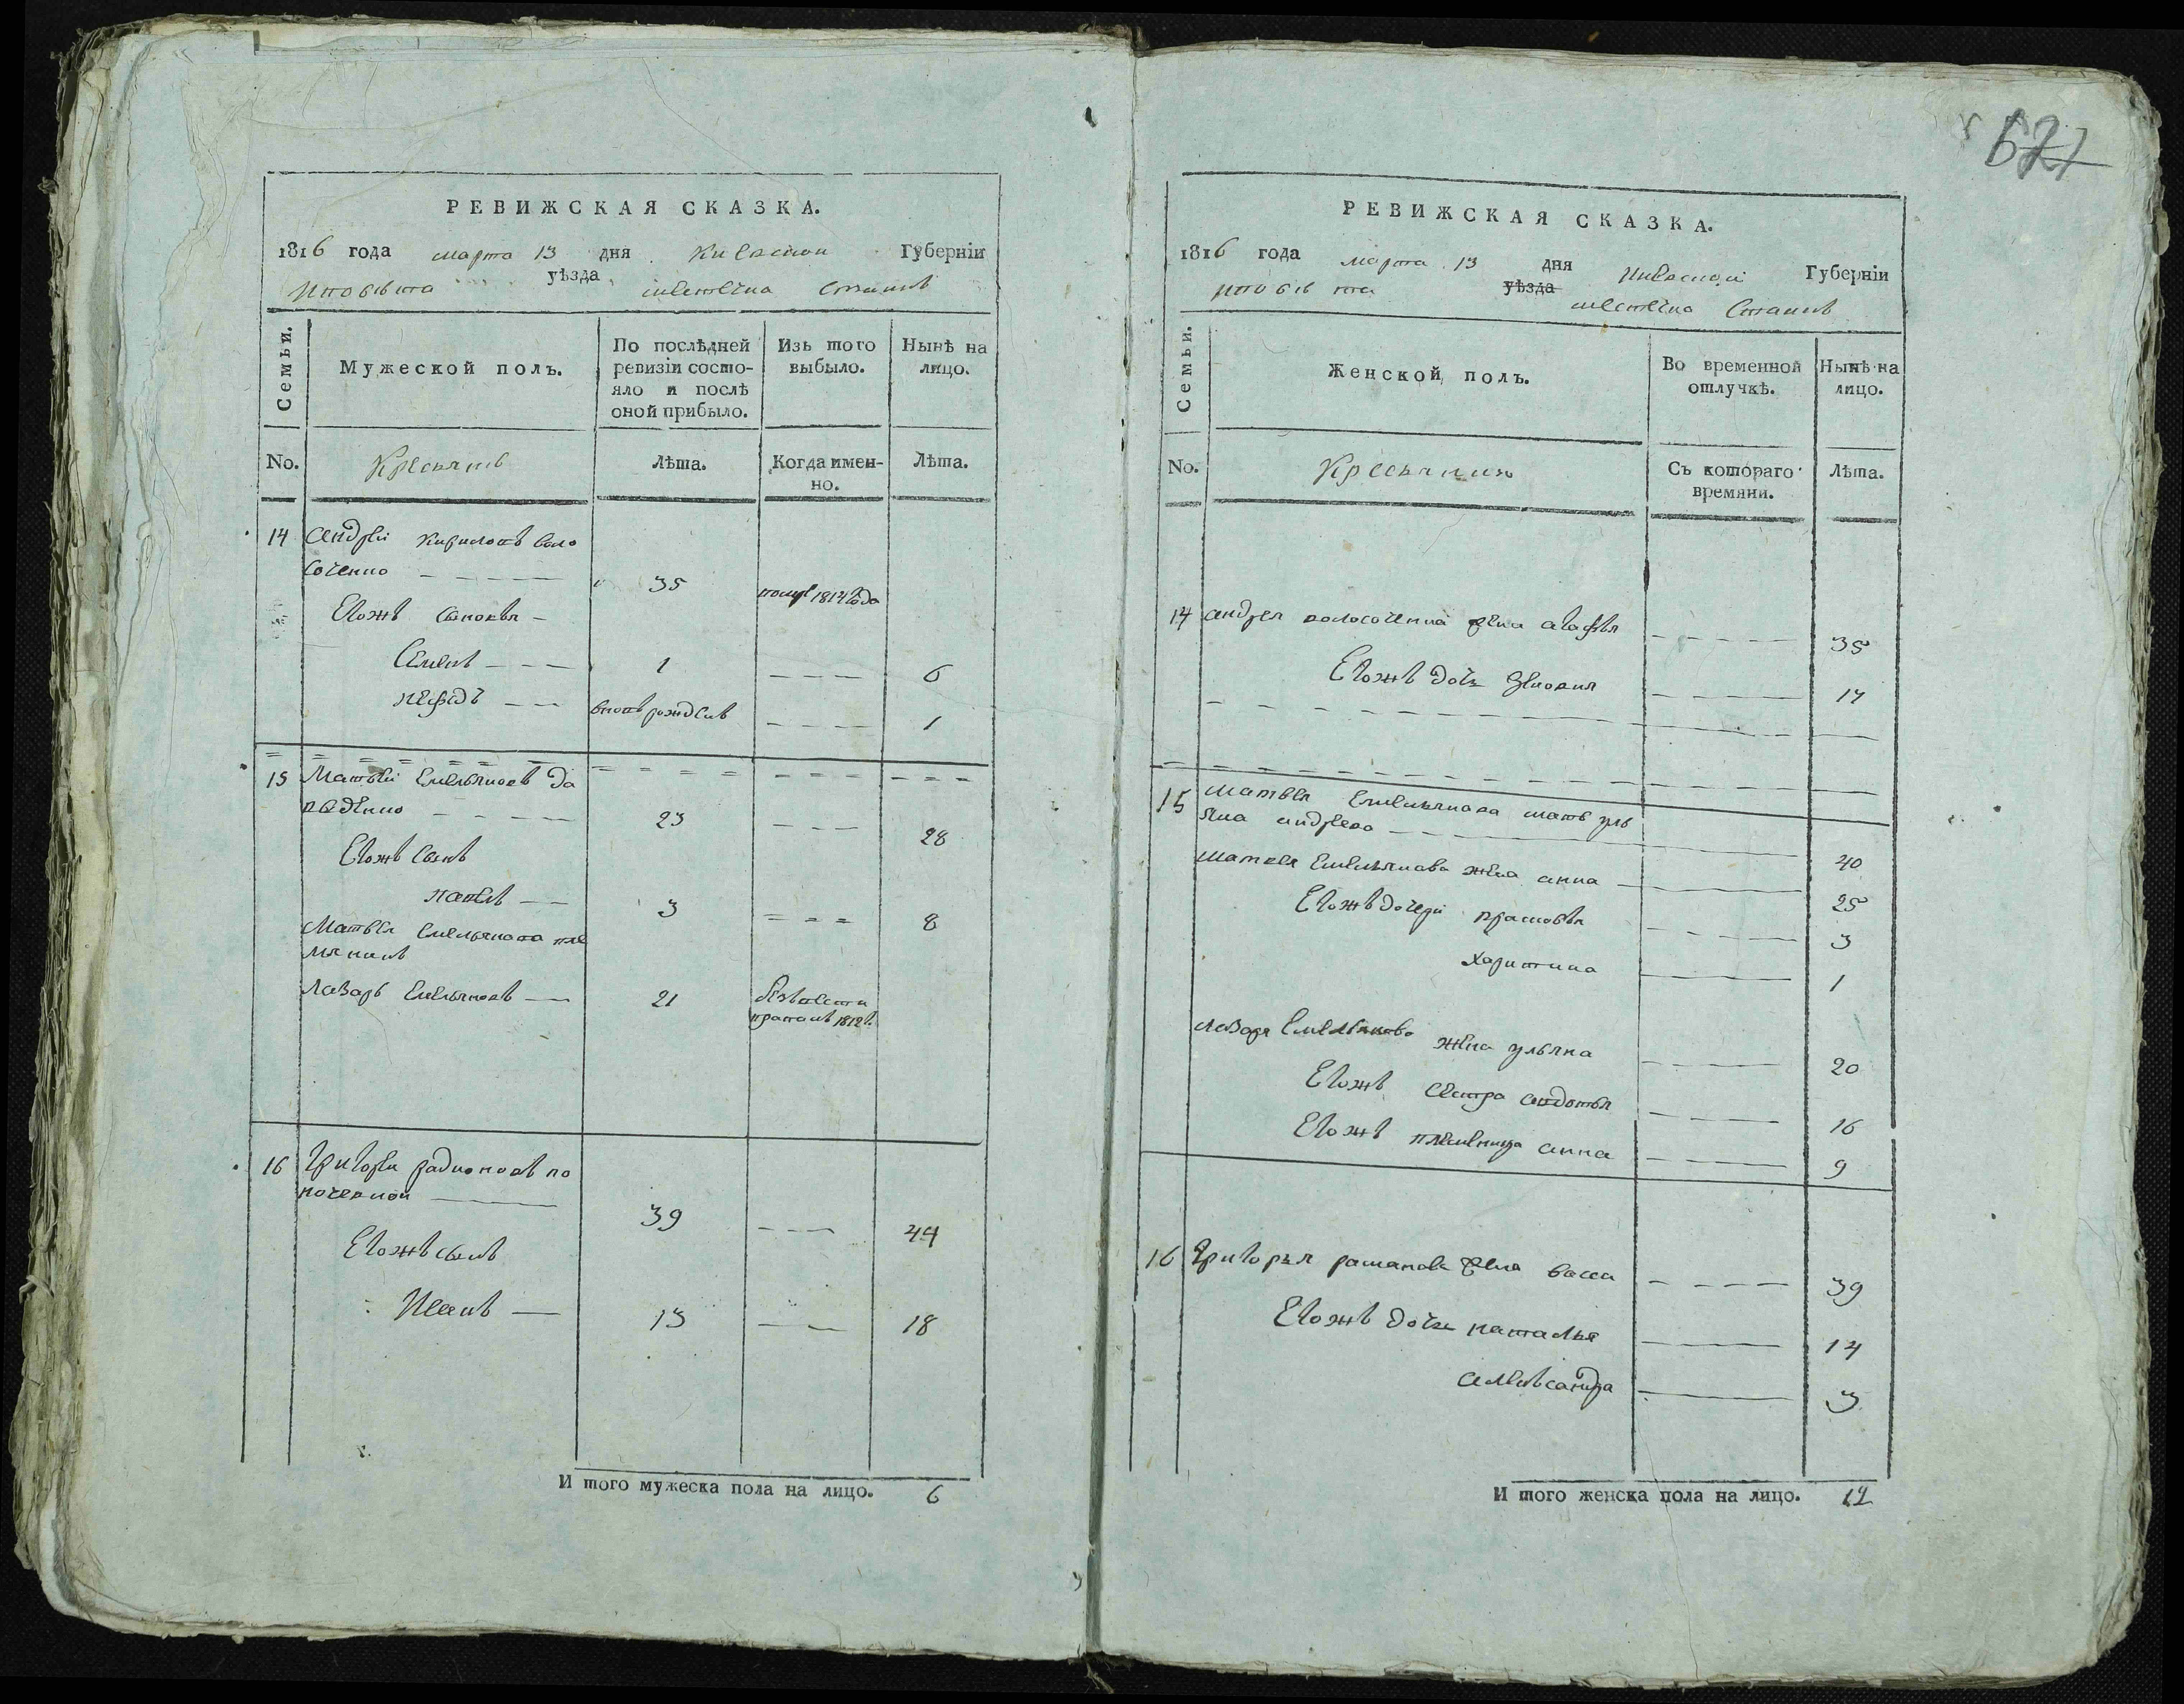 РЕВИЖСКАЯ СКАЗКА.
1816 года марта 13 дня Киевской Губерніи
уѣзда местечка
Семьи.
Мужеской полъ.
По послѣдней ревизіи состо-
яло и послѣ
оной прибыло.
Изъ того
выбыло.
Нынѣ на
лицо.
No.
Лѣта.
Когда имен-
но.
Лѣта.
14 Андрей Кириловъ Воло
соченко 35 1814 года
Егожъ сыновья
Семенъ 1 6
вновь рожденъ 1
15 Матвѣй Емельяновъ Да
23 28
Егожъ сынъ
Павелъ 3 8
Матвѣя Емельянова пле
мяникъ
Лазарь Емельяновъ 21 1812 г.
16 Григорей радионовъ по
39 44
Егожъ сынъ
Иванъ 13 18
И того мужеска пола на лицо. 6
621
РЕВИЖСКАЯ СКАЗКА.
1816 года марта 13 дня Киевской Губерніи
уѣзда местечка
Семьи.
Женской полъ.
Во временной
отлучкѣ.
Нынѣ на
лицо.
No.
Съ котораго
времяни.
Лѣта.
14 Андрея волосоченка жена агафья 35
Егожъ дочь 14
15 Матвѣя Емельянова мать уль
яна андреева 40
Матвея Емельянова жена анна 25
Егожъ дочери прасковья 3
Харитина 1
Лазаря Емельянова жена ульяна 20
Егожъ сестра 16
Егожъ племеница анна 9
16 Григорья жена васса 39
Егожъ дочь наталья 14
александра 3
И того женска пола на лицо. 12